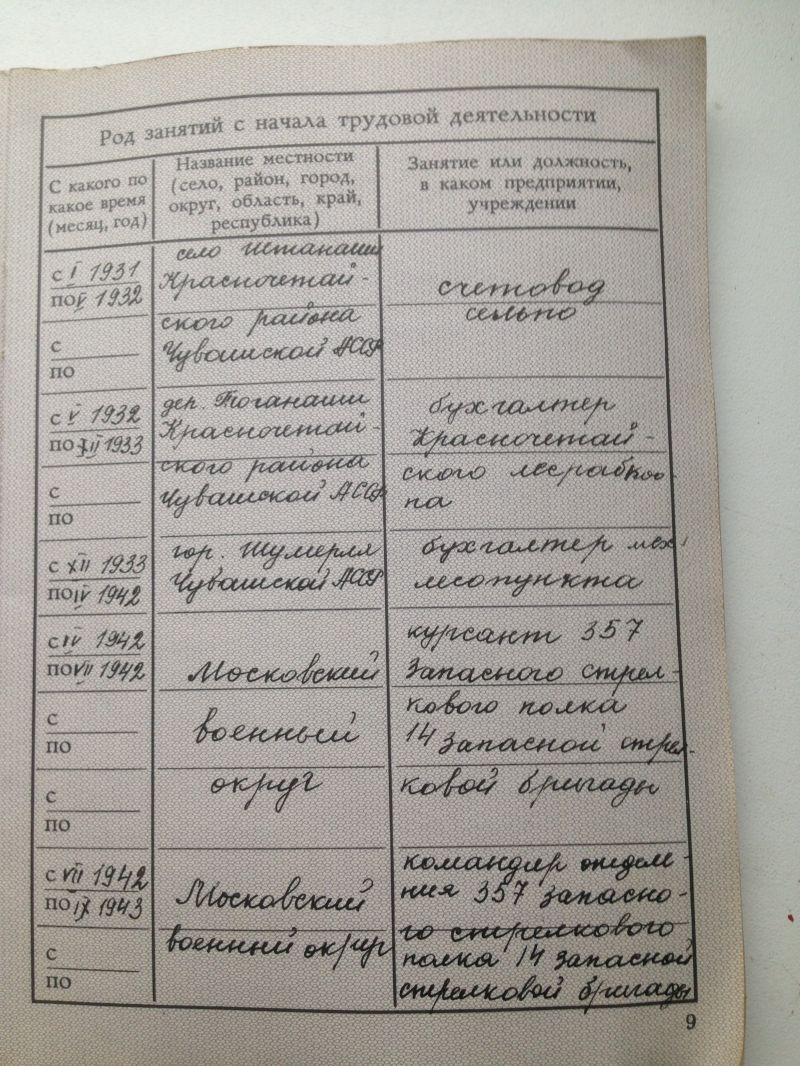 Род занятий с начала трудовой деятельности
С какого по
какое время
(месяц, год)
Название местности
(село, район, город,
округ, область, край,
республика)
Занятие или должность,
в каком предприятии,
учреждении
с I 1931
по V 1932
с
по
село Штанаши
Красночетай-
ского района
Чувашской АССР
счетовод
сельпо
с V 1932
по XII 1933
с
по
дер. Тоганаши
Красночетай-
ского района
Чувашской АССР
бухгалтер
Красночетай-
ского лесрабкоо-
па
с XII 1933
по IV 1942
гор. Шумерля
Чувашской АССР
бухгалтер мех.
лесопункта
с IV 1942
по VII 1942
с
по
с
по
Московский
военный
округ
курсант 357
Запасного стрел-
кового полка
14 Запасной стрел-
ковой бригады
с VII 1942
по IX 1943
с
по
Московский
военный округ
командир отделе-
ния 357 запасно-
го стрелкового
полка 14 запасной
стрелковой бригады
9